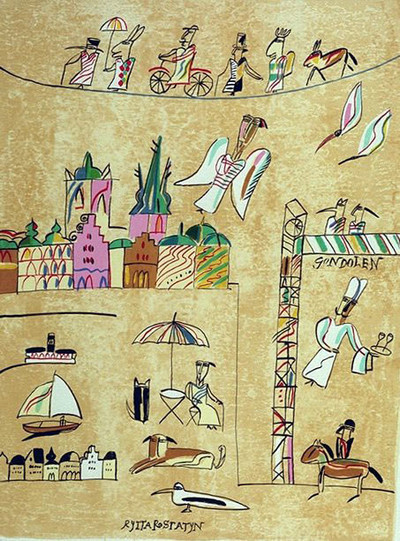 GONDOLEN
RYTTAROSTATYN